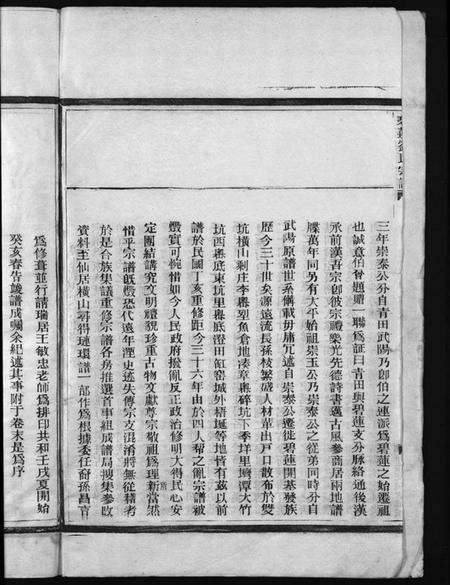 三年崇泰公分自青田武陽乃郎伯之連派爲碧蓮之始遷祖
也誠意伯曾題贈一聯爲証曰青田與碧蓮支分脉絡通後漢
承前漢吾宗卽彼宗禮樂光先德詩書邁古風參商居兩地譜
牒萬年同另有大平始祖崇玉公乃崇泰公之從弟同時分自
武陽原譜世系備載毋庸冗述自崇泰公遷徙碧蓮開基發族
歷今三十世矣源遠流長孫枝繁盛人材輩出戸口散布於雙
坑橫山剩庄李嶴塱魚倉地湊章嶴碎坑下季垟里塆潭大竹
坑西嶴底東坑里嶴底澄田缸窑城外梧埏等地皆有茲以前
譜於民國丁亥重修距今三十六年由於四人幫之亂宗譜被
燬實可惋惜如今人民政府撥亂反正政治修明大得民心安
定團結講究文明禮貌珍重古物文獻尊宗敬祖爲理所當然
惜乎宗譜旣燬恐代遠年湮史迹失傳宗支混淆將無從稽考
於是合族集議重修宗譜各房推選首事組成譜局搜集參攷
資料至仙居橫山尋得璉環譜一部作爲根據委任裔孫昌官
爲修葺並行請瑞居王敏忠老師爲排印共和壬戌夏開始
癸亥春告竣譜成囑余紀述其事附于卷末是爲序